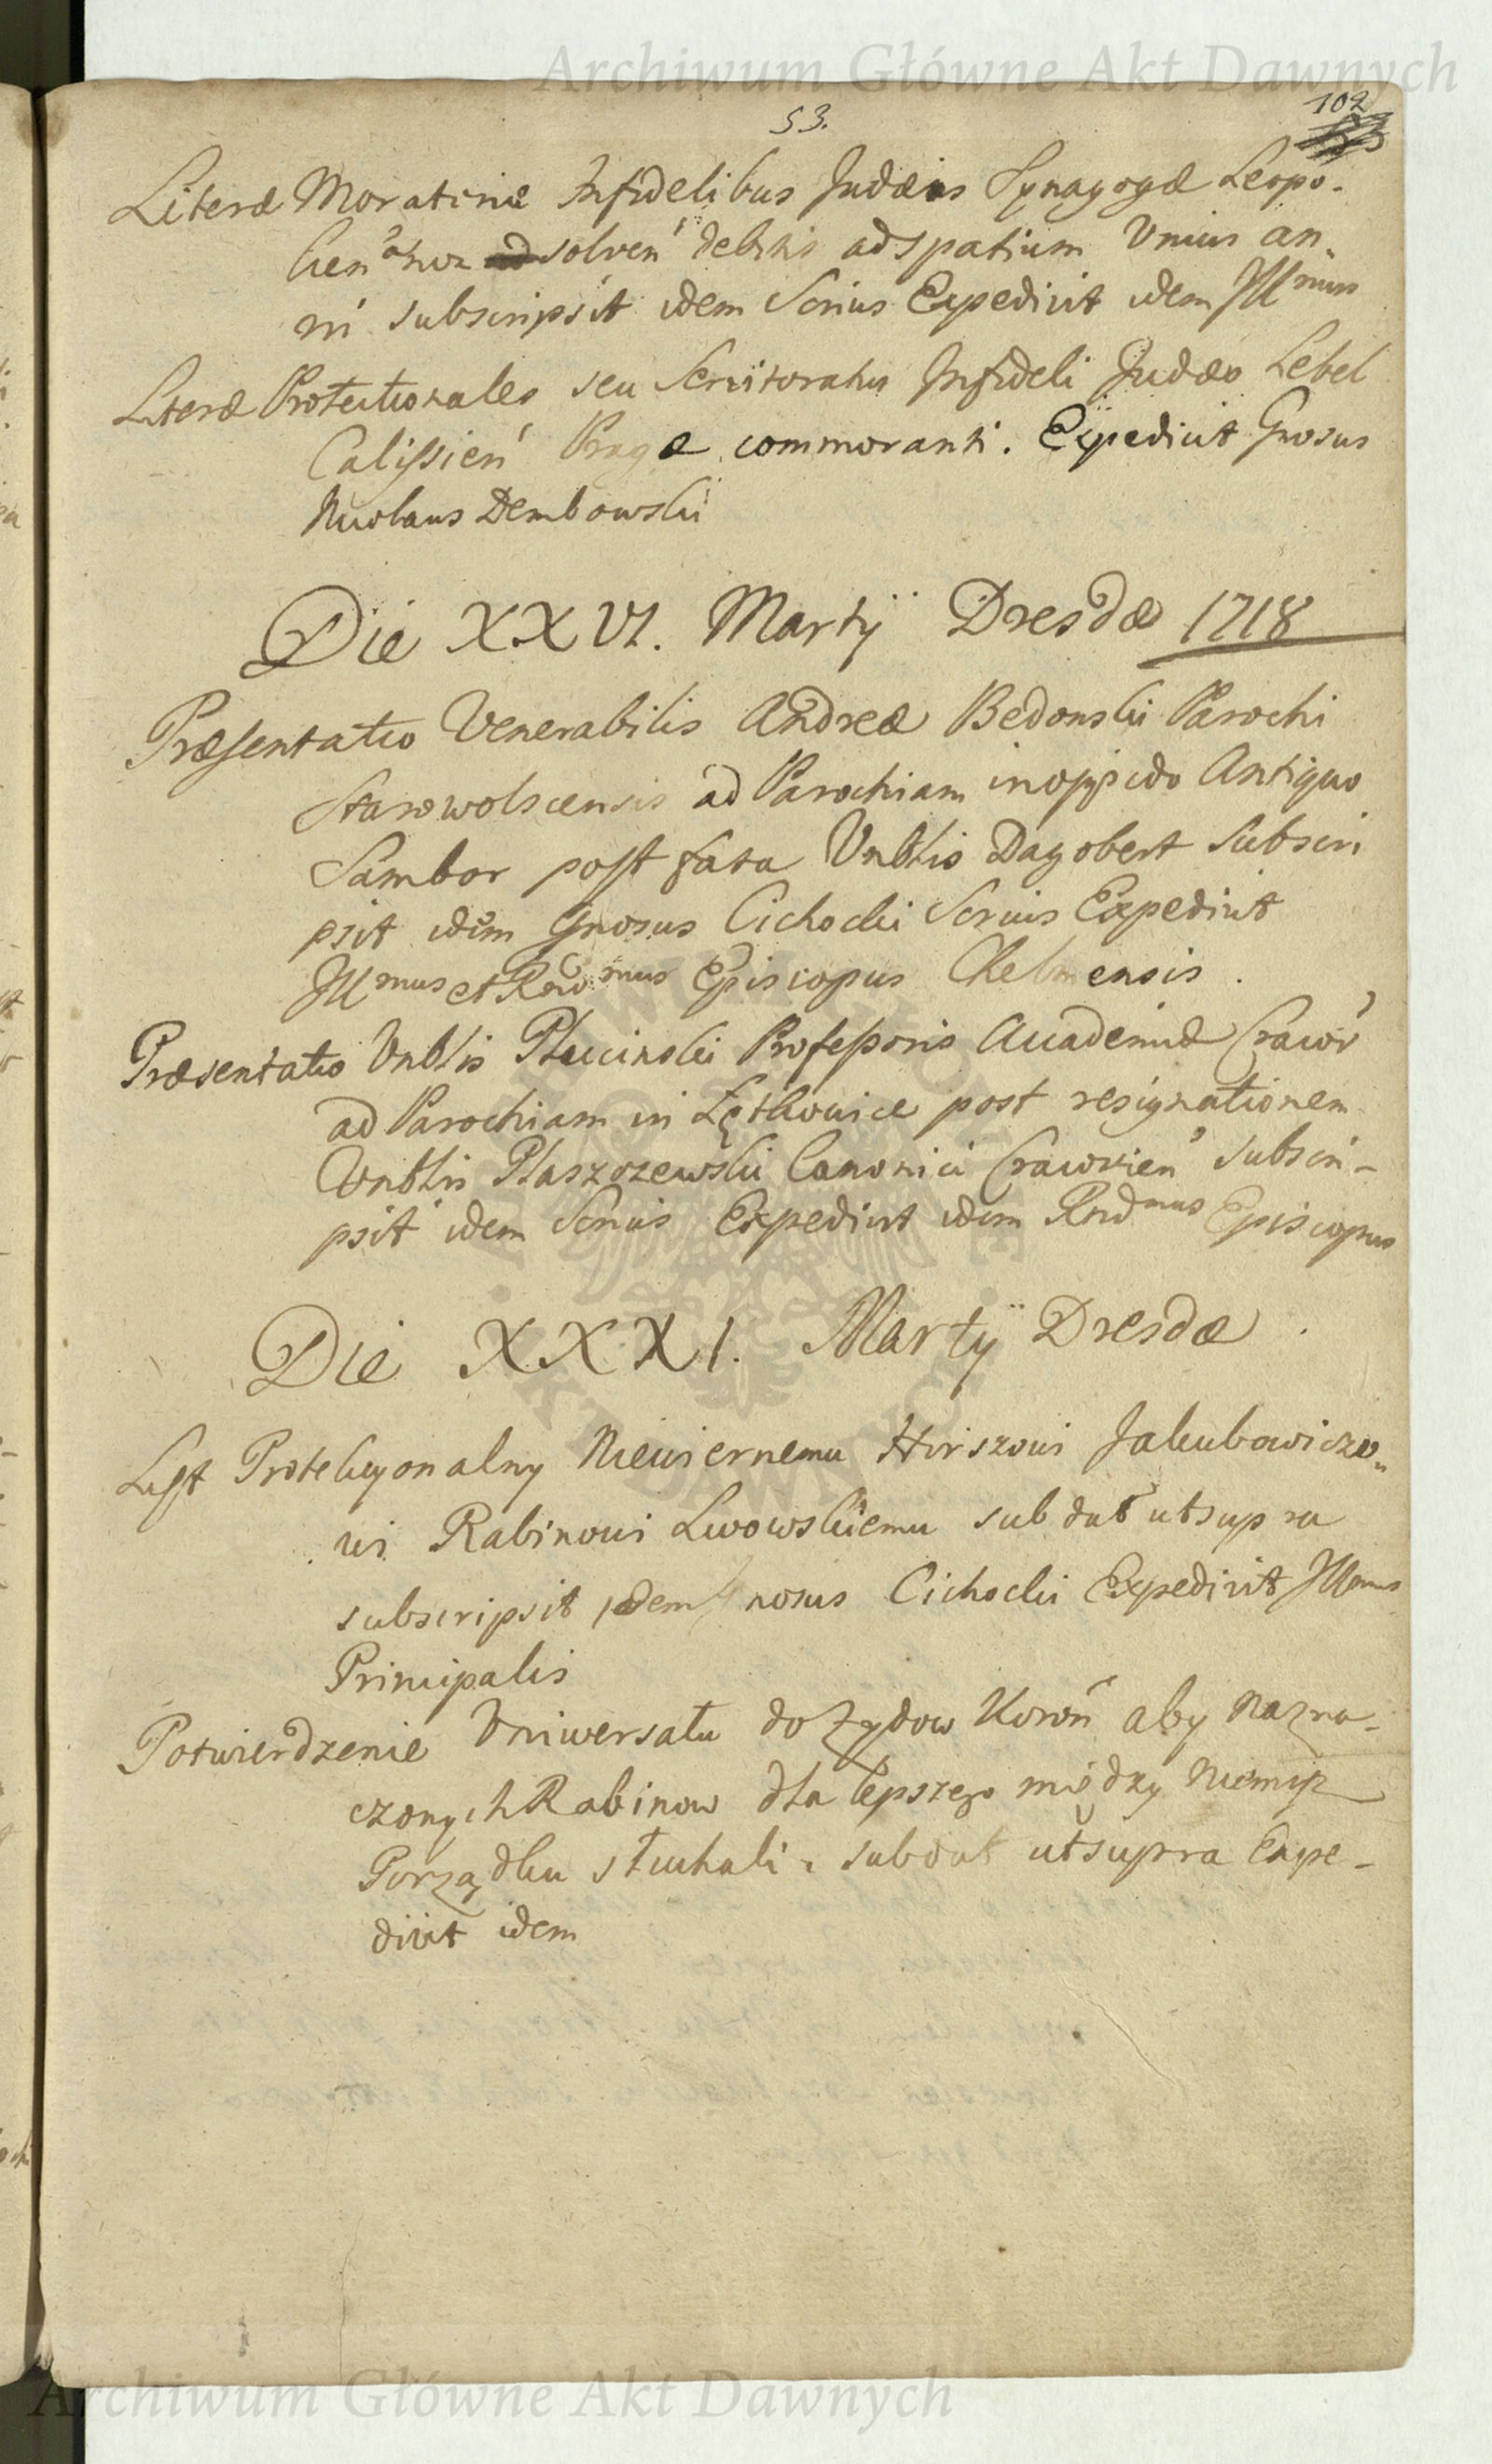 Archiwum Główne Akt Dawnych
53.
102
Literæ Moratoriæ Infidelibus Judæis Synagogæ Leopo-
lien solven debitis ad spatium Unius an-
ni subscripsit idem Scrius Expedivit idem Illmus
Literæ Protectionales seu Servitoratus Infideli Judæo Lebel
Calissien Pragæ commoranti. Expedivit Gnosus
Nicolaus Dembowski
Die XXVI. Martij Dresdæ 1718
Præsentatio Venerabilis Andreæ Bedonski Parochi
Starowolscensis ad Parochiam in oppido Antiquo
Sambor post fata Vnblis Dagobert Subscri
psit idem Gnosus Cichocki Scrius Expedivit
Illmus et Rndmus Episcopus Chelmensis.
Præsentatio Vnblis Plucinski Professoris Academiæ Cracov
ad Parochiam in Łętkowice post resignationem
Vnblis Płaszczewski Canonici Cracovien subscri-
psit idem Scrius Expedivit idem Rndmus Episcopus
Die XXXI. Martij Dresdæ.
List Protekcyonalny Niewiernemu Hirszowi Jakubowiczo-
wi Rabinowi Lwowskiemu sub dat ut supra
subscripsit idem Gnosus Cichocki Expedivit Illmus
Principalis
Potwierdzenie Vniwersału do Żydow Koron aby nazna-
czonych Rabinow dla lepszego między niemi
Porządku słuchali. sub dat ut supra Expe-
divit idem
Archiwum Główne Akt Dawnych